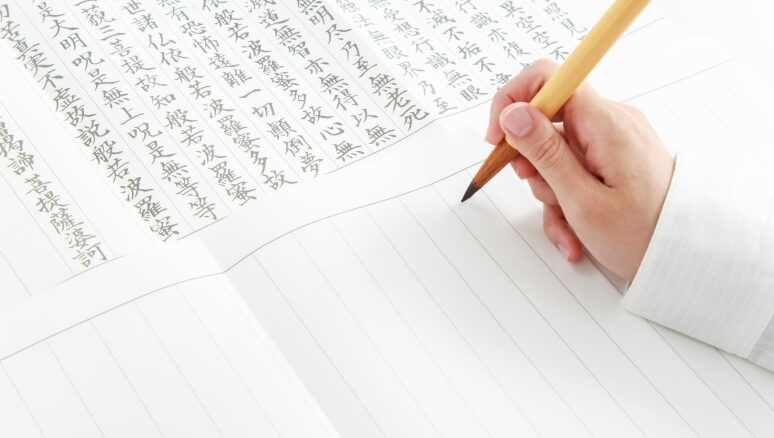 見
異空空
識亦復
滅不垢不
受想行識無
触法無眼界乃至
無明尽乃至無老死
道無智亦無得以無
般若波羅蜜多故心無
有恐怖遠離一切顛倒夢
諸仏依般若波羅蜜多故
藐三菩提故知般若波羅蜜
是大明呪是無上呪是無等等
苦真実不虚故説般若波羅蜜
諦菩提薩婆訶